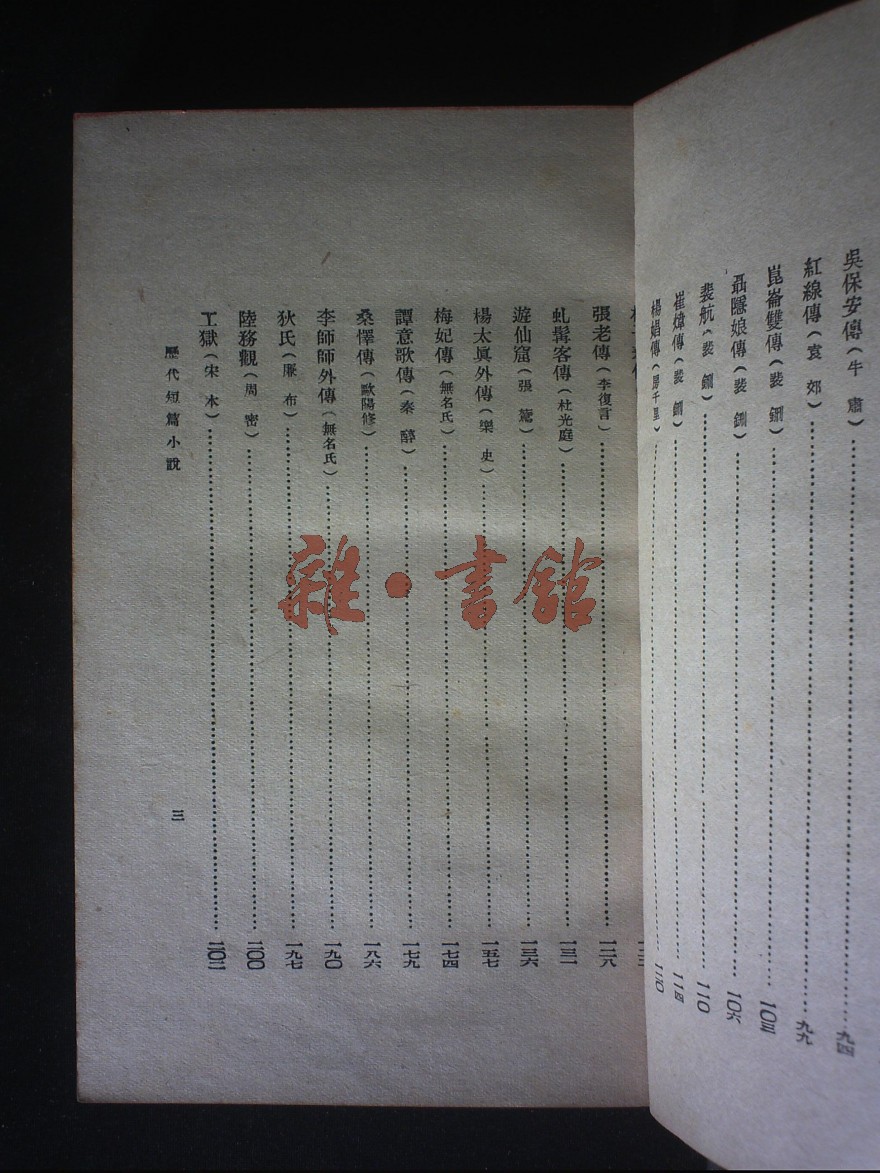 吳保安傳(牛肅)……九四
紅線傳(袁郊)……九九
崑崙雙傳(裴鉶)……一〇三
聶隱娘傳(裴鉶)……一〇六
裴航(裴鉶)……一一〇
崔煒傳(裴鉶)……一一四
楊娼傳(房千里)……一二〇
張老傳(李復言)……一二八
虬髯客傳(杜光庭)……一三一
遊仙窟(張鷟)……一三六
楊太眞外傳(樂史)……一五七
梅妃傳(無名氏)……一七四
譚意歌傳(秦醇)……一七九
桑懌傳(歐陽修)……一八六
李師師外傳(無名氏)……一九〇
狄氏(廉布)……一九七
陸務觀(周密)……二〇〇
工獄(宋本)……二〇二
歷代短篇小說
三
雜·書館